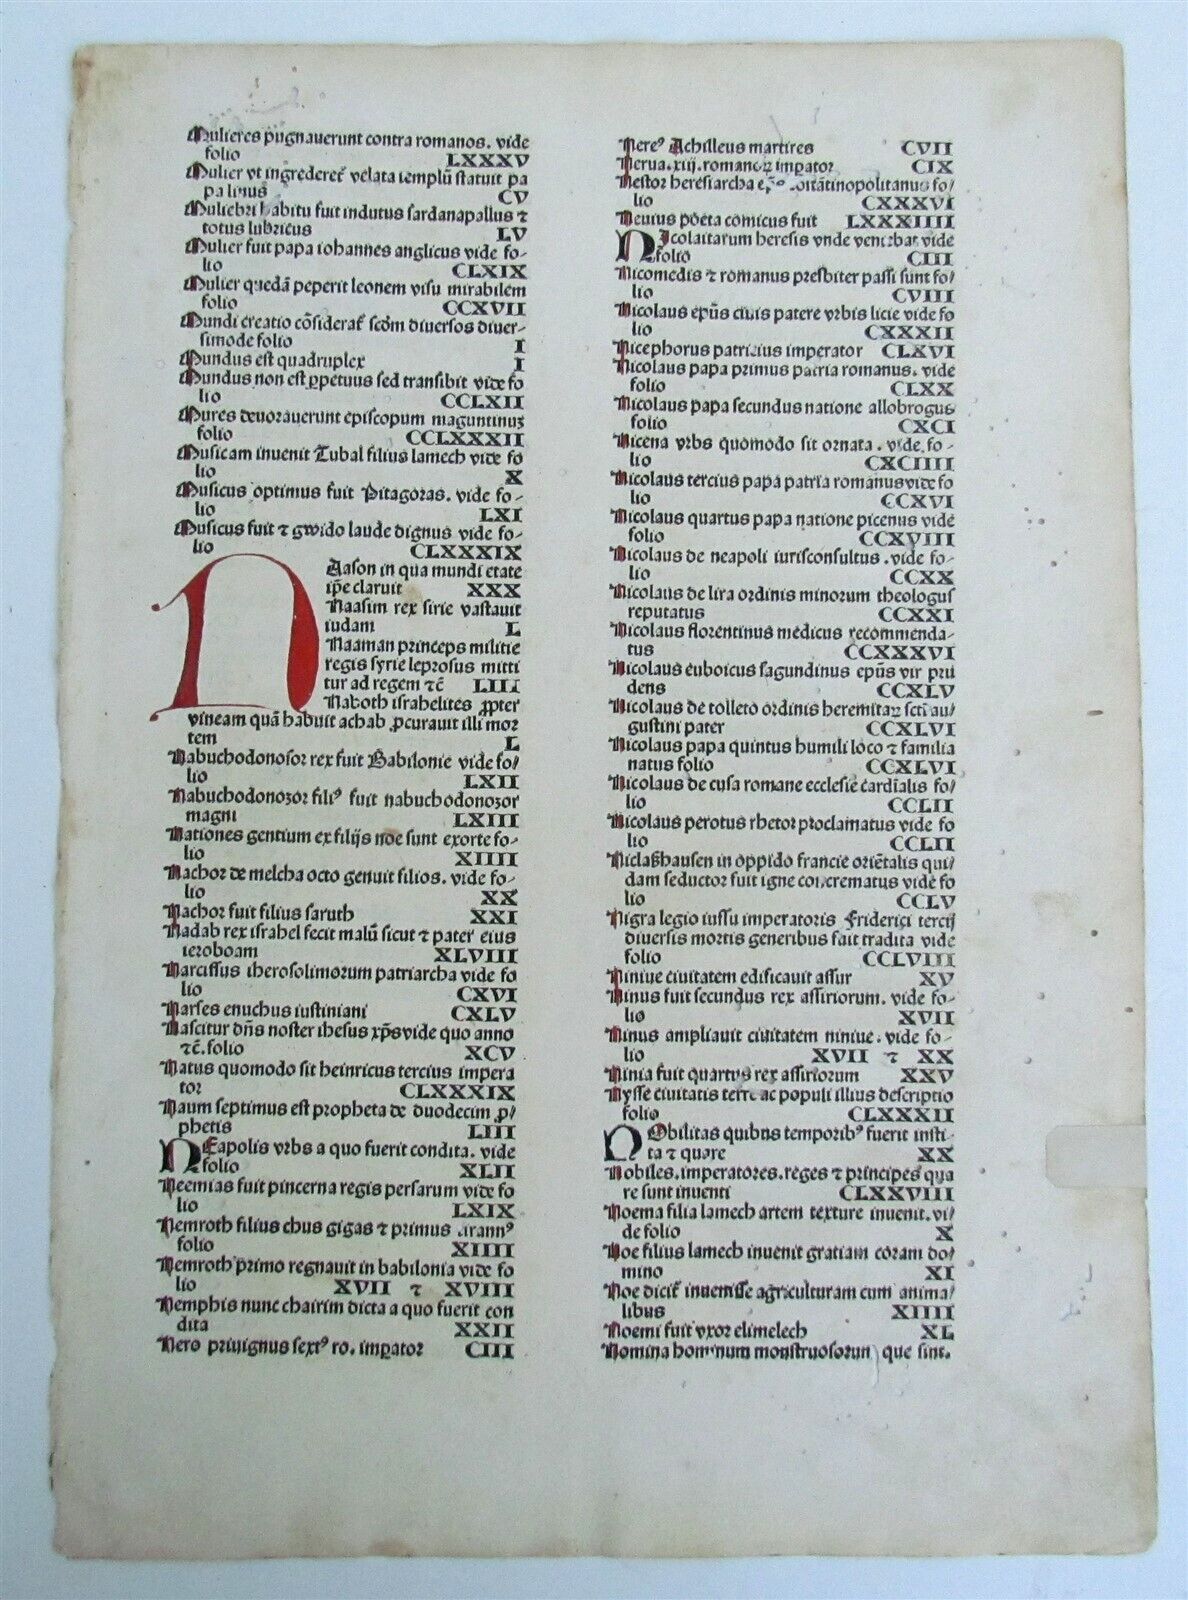 Mulieres pugnauerunt contra romanos. vide
folio LXXXV
Mulier vt ingrederet᷑ velata templū statuit pa
pa linus CV
Muliebri habitu fuit indutus sardanapallus ⁊
totus lubricus LV
Mulier fuit papa iohannes anglicus vide fo-
lio CLXIX
Mulier quedā peperit leonem visu mirabilem
folio CCXVII
Mundi creatio cōsiderat᷑ scḋm diuersos diuer-
simode folio I
Mundus est quadruplex I
Mundus non est ꝑpetuus sed transibit vide fo
lio CCLXII
Mures deuorauerunt episcopum maguntinuꝫ
folio CCLXXXII
Musicam inuenit Tubal filius lamech vide fo
lio X
Musicus optimus fuit Pitagoras. vide fo-
lio LXI
Musicus fuit ⁊ gwido laude dignus vide fo-
lio CLXXXIX
NAason in qua mundi etate
ip̄e claruit XXX
Naasim rex sirie vastauit
iudam L
Naaman princeps militie
regis syrie leprosus mitti
tur ad regem ⁊c̄ LIII
Naboth israhelites ꝓpter
vineam quā habuit achab ꝓcurauit illi mor
tem L
Nabuchodonosor rex fuit Babilonie vide fo/
lio LXII
Nabuchodonozor filiꝰ fuit nabuchodonozor
magni LXIII
Nationes gentium ex filijs noe sunt exorte fo-
lio XIIII
Nachor de melcha octo genuit filios. vide fo-
lio XX
Nachor fuit filius saruth XXI
Nadab rex israhel fecit malū sicut ⁊ pater eius
ieroboam XLVIII
Narcissus iherosolimorum patriarcha vide fo
lio CXVI
Narses enuchus iustiniani CXLV
Nascitur dn̄s noster ihesus xp̄s vide quo anno
⁊c̄. folio XCV
Natus quomodo sit heinricus tercius impera
tor CLXXXIX
Naum septimus est propheta de duodecim ꝓ/
phetis LIII
NEapolis vrbs a quo fuerit condita. vide
folio XLII
Neemias fuit pincerna regis persarum vide fo
lio LXIX
Nemroth filius chus gigas ⁊ primus tirannꝰ
folio XIIII
Nemroth primo regnauit in babilonia vide fo
lio XVII ⁊ XVIII
Nemphis nunc chairim dicta a quo fuerit con
dita XXII
Nero priuignus sextꝰ ro. imꝑator CIII
Nereꝰ Achilleus martires CVII
Nerua. xiij. romanoꝝ imꝑator CIX
Nestor heresiarcha fo/
lio CXXXVI
Neuius poeta comicus fuit LXXXIIII
NIcolaitarum heresis vnde veniebat vide
folio CIII
Nicomedis ⁊ romanus presbiter passi sunt fo/
lio CVIII
Nicolaus ep̄us ciuis patere vrbis licie vide fo
lio CXXXII
Nicephorus patricius imperator CLXVI
Nicolaus papa primus patria romanus. vide
folio CLXX
Nicolaus papa secundus natione allobrogus
folio CXCI
Nicena vrbs quomodo sit ornata. vide fo-
lio CXCIIII
Nicolaus tercius papa patria romanus vide fo
lio CCXVI
Nicolaus quartus papa natione picenus vide
folio CCXVIII
Nicolaus de neapoli iurisconsultus. vide fo-
lio CCXX
Nicolaus de lira ordinis minorum theologus
reputatus CCXXI
Nicolaus florentinus medicus recommenda-
tus CCXXXVI
Nicolaus euboicus sagundinus ep̄us vir pru
dens CCXLV
Nicolaus de tolleto ordinis heremitaꝝ sct̄i au/
gustini pater CCXLVI
Nicolaus papa quintus humili loco ⁊ familia
natus folio CCXLVI
Nicolaus de cusa romane ecclesie cardīalis fo/
lio CCLII
Nicolaus perotus rhetor proclamatus vide fo
lio CCLII
Niclaßhausen in oppido francie oriētalis qui/
dam seductor fuit igne concrematus vide fo
lio CCLV
Nigra legio iussu imperatoris Friderici tercij
diuersis mortis generibus fuit tradita vide
folio CCLVIII
Niniue ciuitatem edificauit assur XV
Ninus fuit secundus rex assiriorum. vide fo-
lio XVII
Ninus ampliauit ciuitatem niniue. vide fo-
lio XVII ⁊ XX
Ninia fuit quartus rex assiriorum XXV
Nysse ciuitatis terre ac populi illius descriptio
folio CLXXXII
NObilitas quibus temporibꝰ fuerit insti-
ta ⁊ quare XX
Nobiles. imperatores. reges ⁊ principes qua
re sunt inuenti CLXXVIII
Noema filia lamech artem texture inuenit. vi/
de folio X
Noe filius lamech inuenit gratiam coram do/
mino XI
Noe dicit᷑ inuenisse agriculturam cum anima/
libus XIIII
Noemi fuit vxor elimelech XL
Nomina hominum monstruosorum que sint.